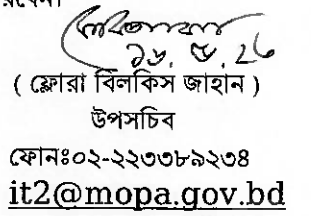 ১৬.৫.২৬
( ফ্লোরা বিলকিস জাহান )
উপসচিব
ফোনঃ০২-২২৩৩৮৯২৩৪
it2@mopa.gov.bd